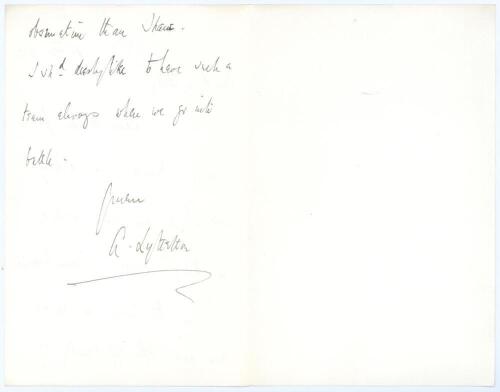 observation than I have.
I shd dearly like to have such a
team always when we go into
battle.
Yours
A. Lyttelton